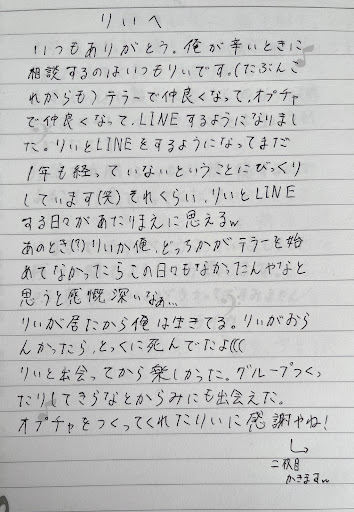 りいへ
いつもありがとう。俺が辛いときに
相談するのはいつもりいです。(たぶんこ
れからも)テラーで仲良くなって、オプチャ
で仲良くなって、LINEするようになりまし
た。りいとLINEをするようになってまだ
1年も経っていないということにびっくり
しています(笑)それくらい、りいとLINE
する日々があたりまえに思えるw
あのとき(?)りいか俺、どっちかがテラーを始
めてなかったらこの日々もなかったんやなと
思うと感慨深いなぁ…
りいが居たから俺は生きてる。りいがおら
んかったら、とっくに死んでたよ(((
りいと出会ってから楽しかった。グループつくっ
たりしてきらなとからみにも出会えた。
オプチャをつくってくれたりいに感謝やね!
二枚目
かきますw